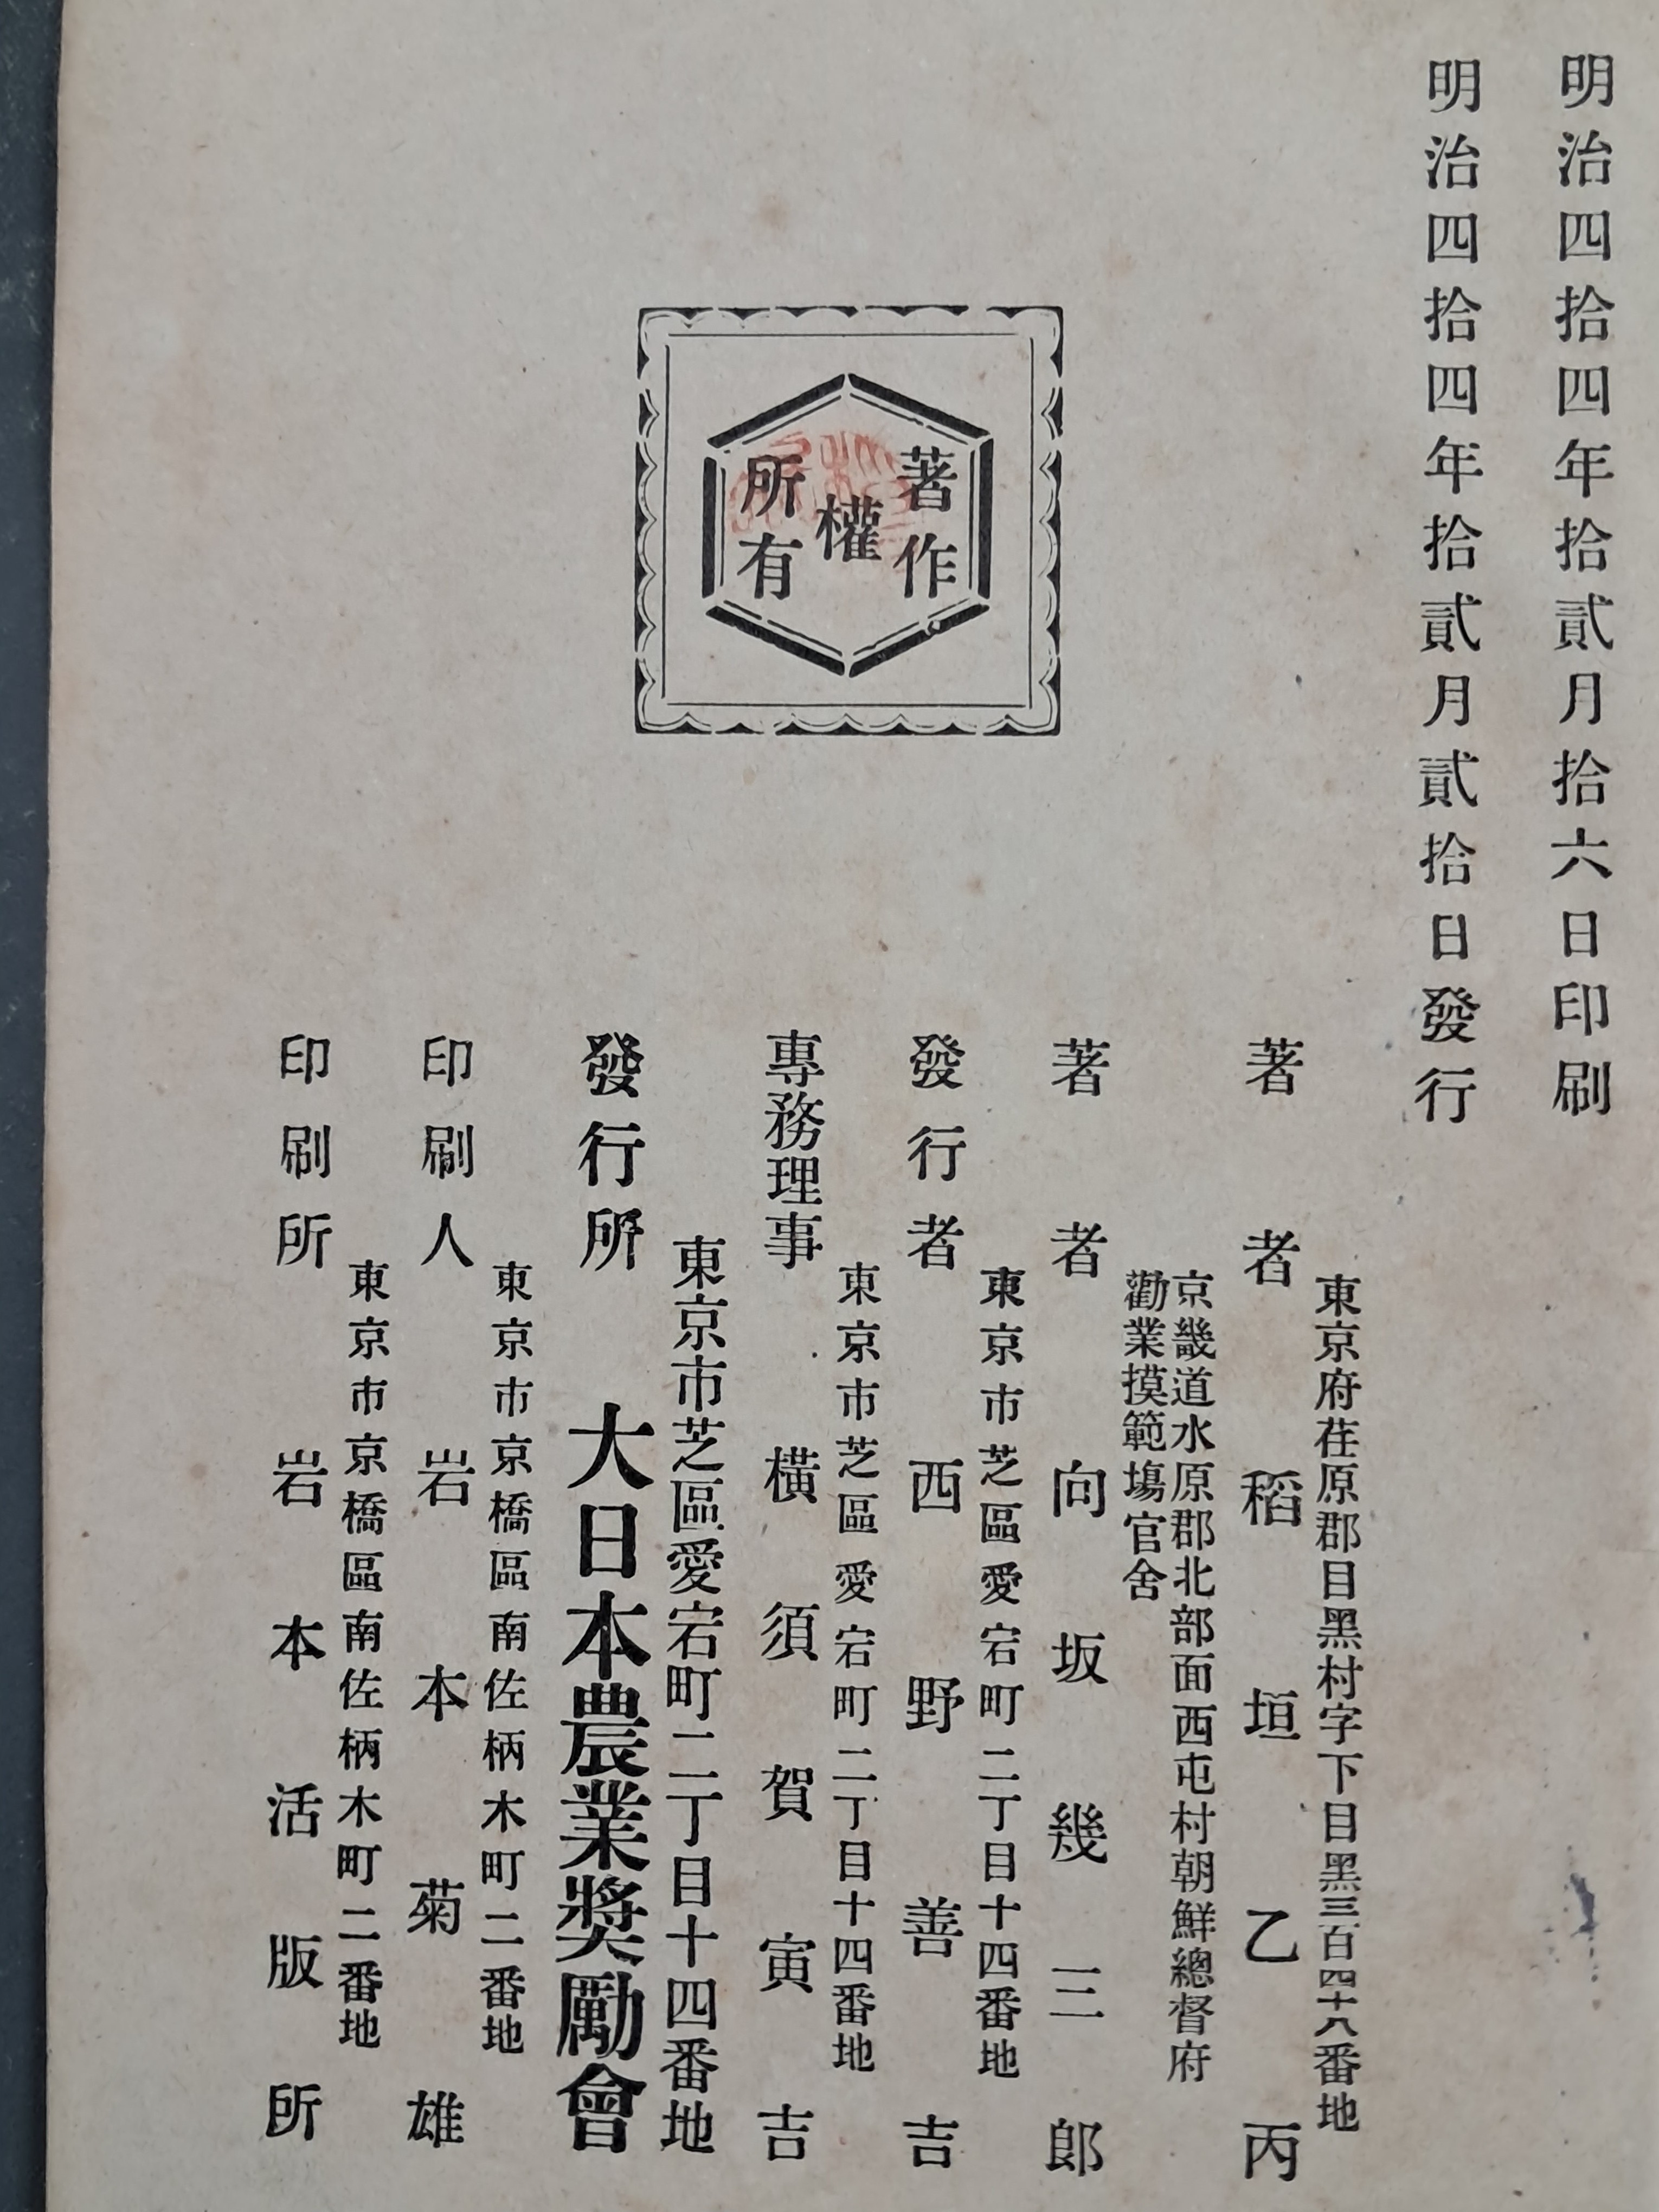 明治四拾四年拾貳月拾六日印刷
明治四拾四年拾貳月貳拾日發行
著作
權
所有
東京府荏原郡目黑村字下目黑三百四十八番地
著者 稻垣乙丙
京畿道水原郡北部面西屯村朝鮮總督府
勸業摸範場官舍
著者 向坂幾三郎
東京市芝區愛宕町二丁目十四番地
發行者 西野善吉
東京市芝區愛宕町二丁目十四番地
專務理事 橫須賀寅吉
東京市芝區愛宕町二丁目十四番地
發行所 大日本農業奬勵會
東京市京橋區南佐柄木町二番地
印刷人 岩本菊雄
東京市京橋區南佐柄木町二番地
印刷所 岩本活版所